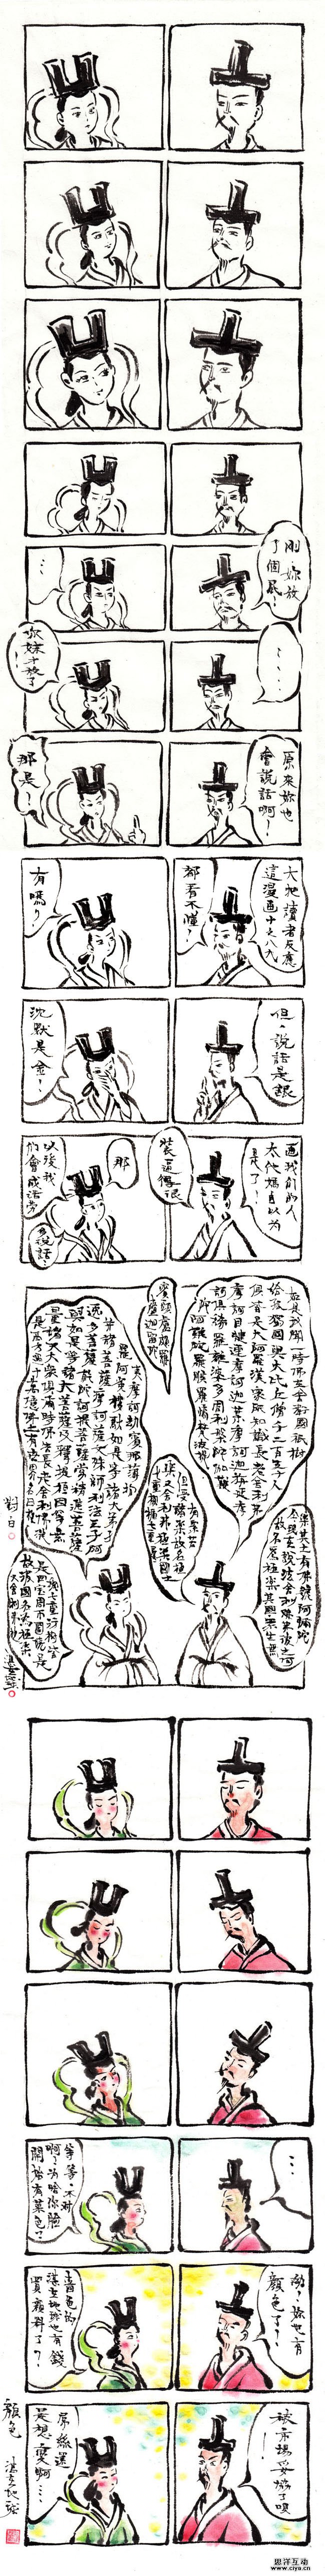 剛、妳放
了個屁！
…
……
你妹才放了！
原來妳也
會說話啊！
那是！
大牠讀者反應
這漫画十之八九
都看不懂！
有嗎？
但、說話是銀
沈默是金！
画我們的人
太他媽自以為
是了！
裝逼得很
那
以後我
們會成話勞
多說話！
如是我聞一時佛在舍衛國祇樹
給孤獨園與大比丘僧千二百五十人
俱皆是大阿羅漢眾所知識長老舍利弗
摩訶目犍連摩訶迦葉摩訶迦旃延摩
訶俱絺羅離婆多周利槃陀伽難
陀阿難陀羅睺羅憍梵波提
賓頭盧頗羅
墮迦留陀
夷摩訶劫賓那薄拘
羅阿㝹樓馱如是等諸大弟子
并諸菩薩摩訶薩文殊師利法王子阿
逸多菩薩乾陀訶提菩薩常精進菩薩
與如是等諸大菩薩及釋提桓因等無
量諸天大眾俱爾時佛告長老舍利弗從
是西方過十萬億佛土有世界名曰極
樂其土有佛號阿彌陀
今現在說法舍利弗彼土何
故名為極樂其國眾生無
有眾苦
但受諸樂故名極
樂又舍利弗極樂國土
七重欄楯七重
羅網七重行樹皆
是四寶周匝圍繞是
故彼國名為極樂
又舍利弗極樂
對白
…
等等、不对
啊？為啥你臉
開始有菜色？
喲？妳也有
顏色了？
有錢
買顏料了？
被市場妥協了唄
！
屌絲還
是想變啊…
顏色
思洋互动
www.ciya.cn